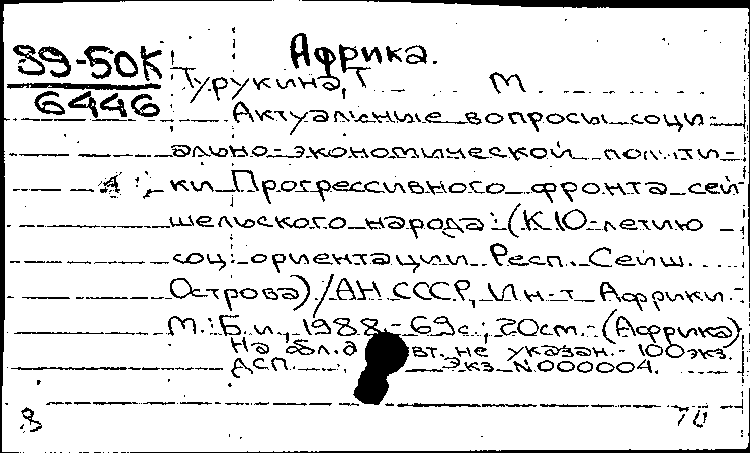 Африка.
89-50К
6446
Турукина, Т М
Актуальные вопросы соци-
ально-экономической полити-
ки Прогрессивного фронта сей-
шельского народа: (К 10-летию
соц. ориентации Респ. Сейш.
Острова) / АН СССР, Ин-т Африки.-
М.: Б.и., 1988.- 69с.; 20см.- (Африка)
На обл. а вт. не указан.- 100экз.
ДСП. Экз. N000004.
8